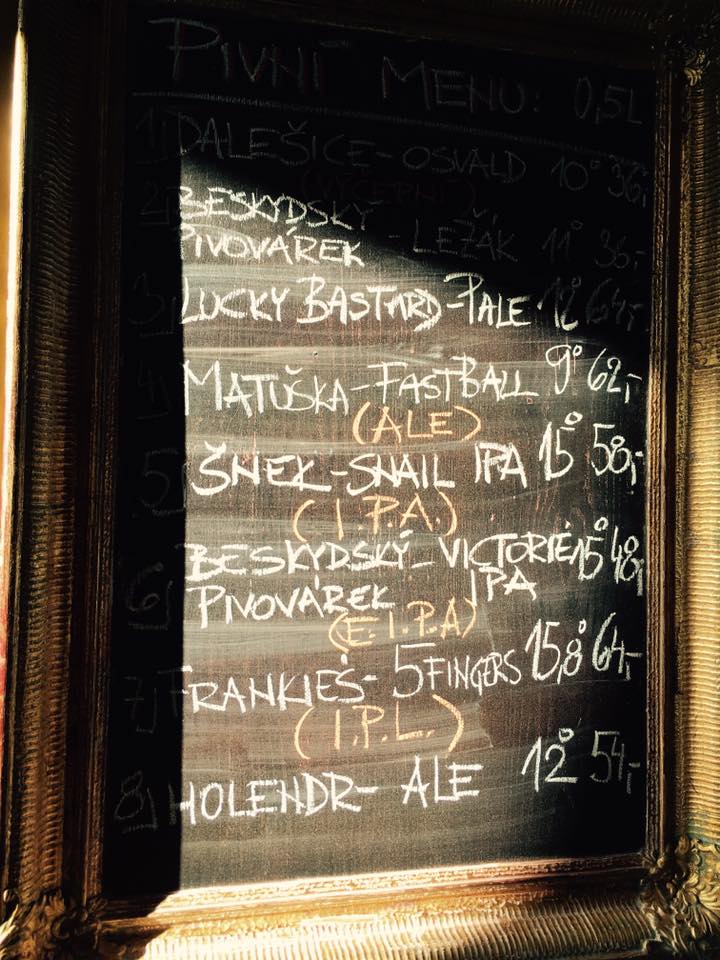 PIVNÍ MENU: 0,5L
1) DALEŠICE - OSVALD 10° 36,-
(VÝČEPNÍ)
2) BESKYDSKÝ
PIVOVÁREK - LEŽÁK 11° 36,-
3) LUCKY BASTARD - PALE 12° 64,-
4) MATUŠKA - FASTBALL 9° 62,-
(ALE)
5) ŠNEK - SNAIL IPA 15° 58,-
(I.P.A.)
6) BESKYDSKÝ - VICTORIEN 15° 48,-
PIVOVÁREK IPA
(E.I.P.A)
7) FRANKIEŠ - 5 FINGERS 15,8° 64,-
(I.P.L.)
8) HOLENDR - ALE 12° 54,-